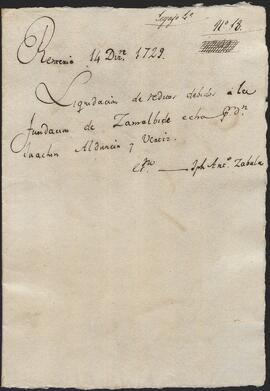 Legajo 4º
Nº 18.
Renteria 14 Dizre. 1729.
Liquidacion de reditos debidos à la
fundacion de Zamalbide echa Pr. dn.
Juachin Alduncin y
Essno ——— Jph Antº. Zabala